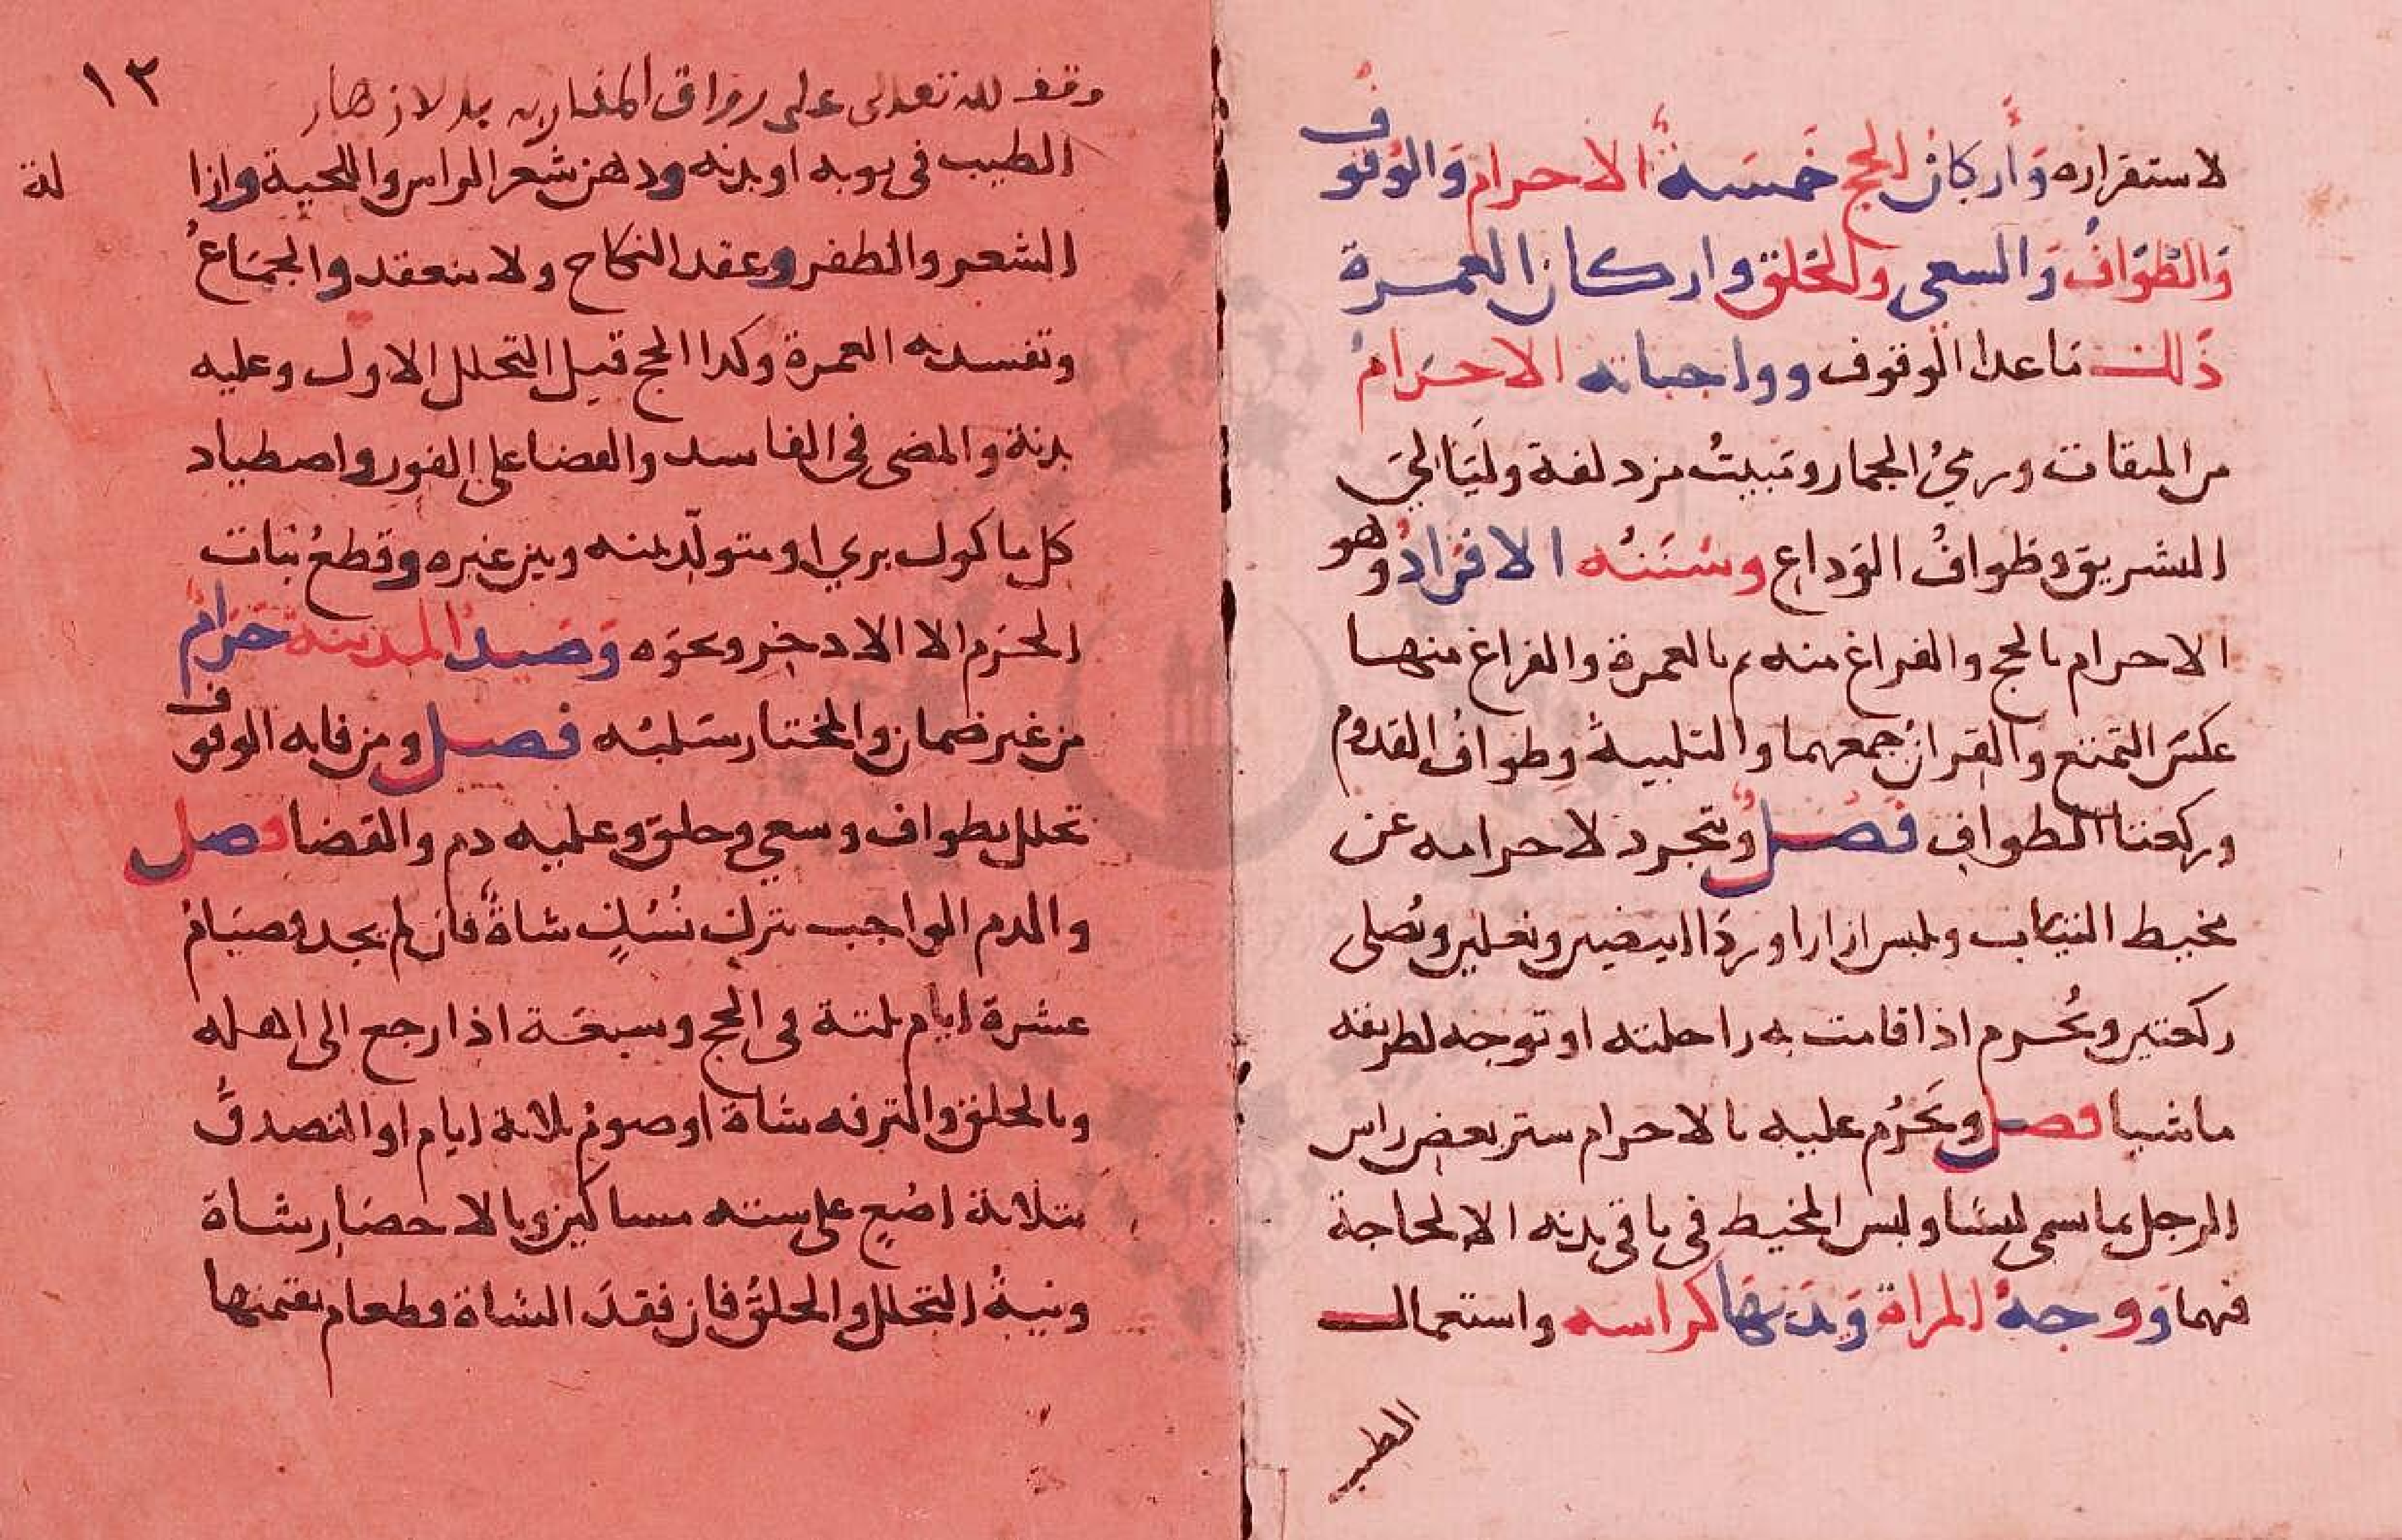 لاستقراره وَأركانُ الحج خَمسَةٌ الاحرام وَالوُقوف
وَالطَّوَافُ وَالسعى والحَلق واركان العمرة
ذَلك مَاعدا الوقوف وواجباته الاحرَام
من الميقات ورمىُ الجمار ومَبيتُ مزدلفة ولَيَالىَ
التشريق وطَوافُ الوَداع وسُنَنُه الافرَادُ وهو
الاحرام بالحج والفراغ منه ثم بالعمرة والفراغ منها
عكسَ التمتع والقِرانُ جمعهما والتلبيةُ وطوافُ القدوم
وركعتا الطواف فَصْلٌ ويتجرد لاحرامه عن
مخيط الثياب ويلبس ازارا وردَا ابيضين ونعلين ويُصلى
ركعتين ويُحْرم اذا قامت به راحلته او توجه لطريقه
ماشيا فصل ويَحْرُم عليه بالاحرام ستر بعض راس
الرجل بما يسمى لبسًا ولبس المخيط فى باقى بدنه الا لحاجة
فيهما وَوجهُ المراة وَيَدَيها كراسه واستعمال
الطيب
وقف لله تعالى على رواق المغاربه بالازهار
١٣
الطيب فى ثوبه او بدنه ودهن شَعر الراس واللحية وازا
لة
الشعر والظفر وعقد النكاح ولا ينعقد والجمَاعُ
وتفسد به العمرة وكذا الحج قبل التحلل الاول وعليه
بدنة والمضى فى الفاسد والقضا على الفور واصطياد
كل ماكول برى او متولّد منه ومن غيره وقطعُ نبات
الحَرَم الا الاذخر ونحوَه وَصَيدُ المدينة حَرَامٌ
من غير ضمان والمختار سَلبُه فصل ومن فاته الوقوف
تحلل بطواف وسعى وحلق وعليه دم والقضا فصل
والدم الواجب بترك نُسُكٍ شاةٌ فان لم يجد فصيَامُ
عشرة ايام ثلثة فى الحج وسبعَة اذا رجع الى اهله
وبالحلق والترفه شاة او صومُ ثلاثة ايام او التصدقُ
بثلاثة اصُعٍ على ستة مساكين وبالاحصَار شاة
ونيةُ التحلل والحلقُ فان فقدَ الشاة فطعام بقيمتها